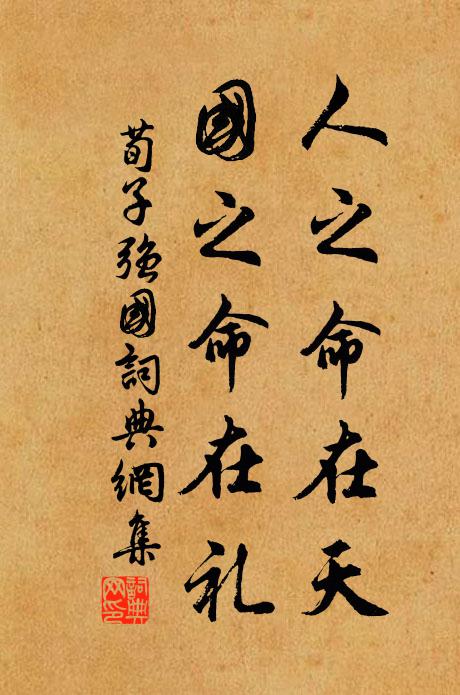 人之命在天
國之命在礼
荀子强國詞典網集
詞典
网印